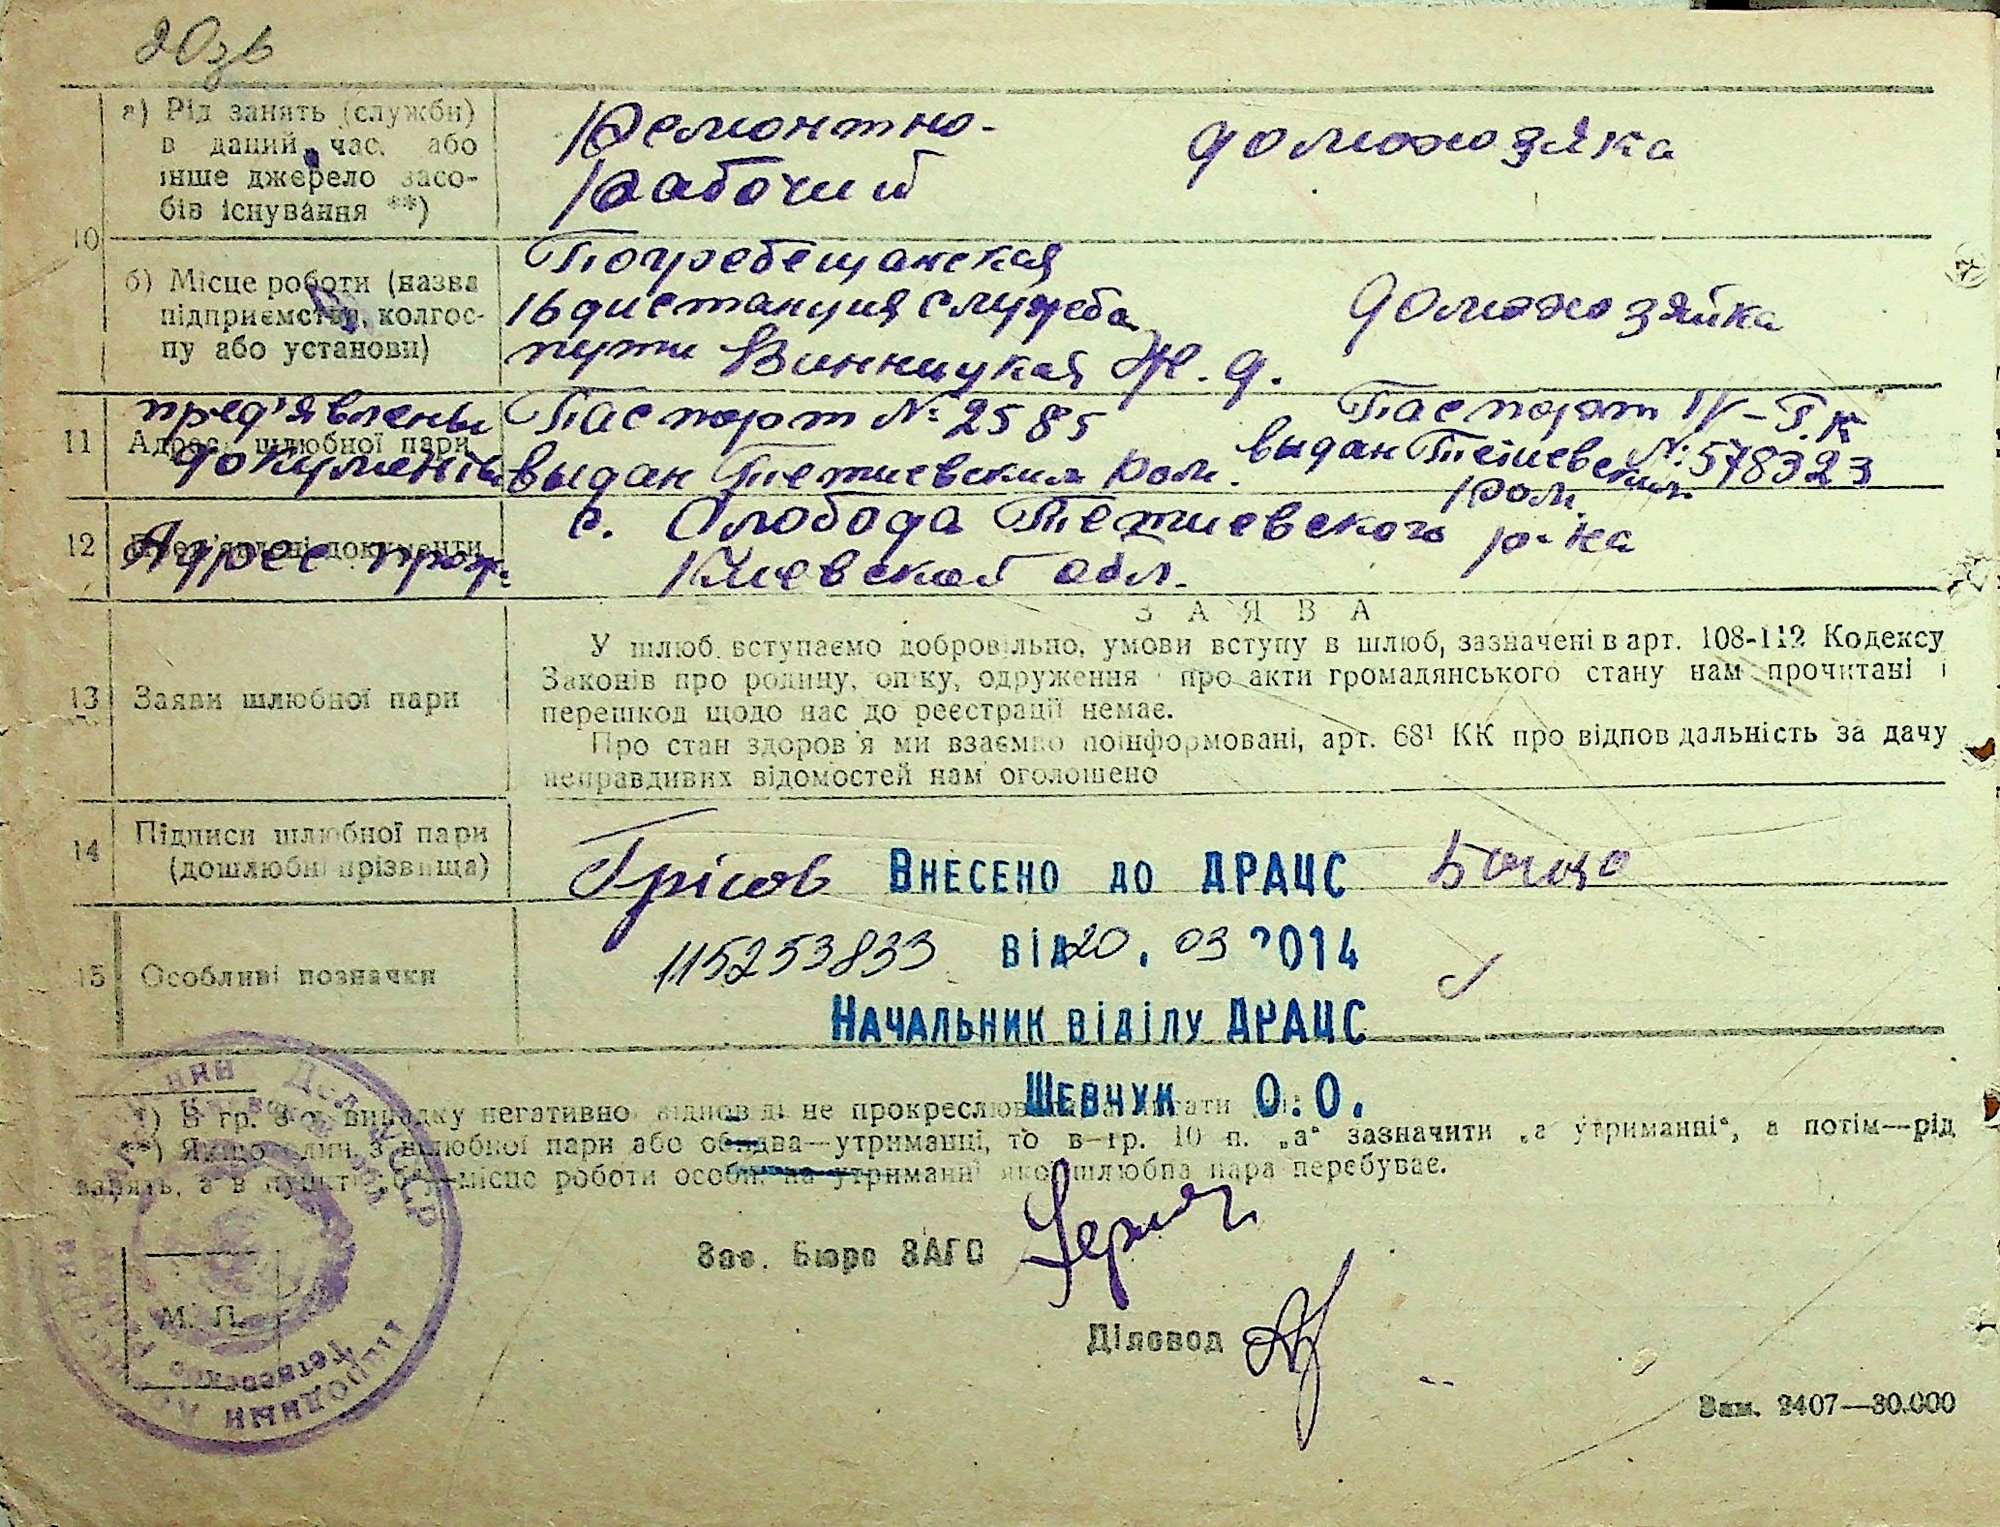 20зв
а) Рід занять (служби)
в даний час, або
інше джерело засо-
бів існування **)
Ремонтно-
рабочий
домохозяйка
10
б) Місце роботи (назва
підприємства, колгос-
пу або установи)
Погребещанская
16 дистанция служба
пути Винницкая ж.д.
домохозяйка
11
Адреса шлюбної пари
пред'явлены
документы
Паспорт №2585
выдан Тетиевским ром.
Паспорт IV-
№:578323
выдан Тетиевским
ром.
12
Пред'явлені документи
Адрес прож.
с. Слобода Тетиевского р-на
Киевской обл.
13 Заяви шлюбної пари
ЗАЯВА
У шлюб вступаємо добровільно, умови вступу в шлюб, зазначені в арт. 108-112 Кодексу
Законів про родину, опіку, одруження і про акти громадянського стану нам прочитані і
перешкод щодо нас до реєстрації немає.
Про стан здоров'я ми взаємно поінформовані, арт. 68¹ КК про відповідальність за дачу
неправдивих відомостей нам оголошено
14
Підписи шлюбної пари
(дошлюбні прізвища)
15 Особливі позначки
Внесено до ДРАЦС
115253833 від 20.03 2014
Начальник відділу ДРАЦС
Шевчук О.О.
*) В гр. 8 у випадку негативної відповіді не прокреслювати а писати
**) Якщо один з шлюбної пари або обидва—утриманці, то в—гр. 10 п. „а“ зазначити „з утриманці“, а потім—рід
занять, а в пункті „б“—місце роботи особи, на утриманні якої шлюбна пара перебуває.
Зав. Бюро ЗАГС
Діловод
М. П.
Зам. 2407—30.000